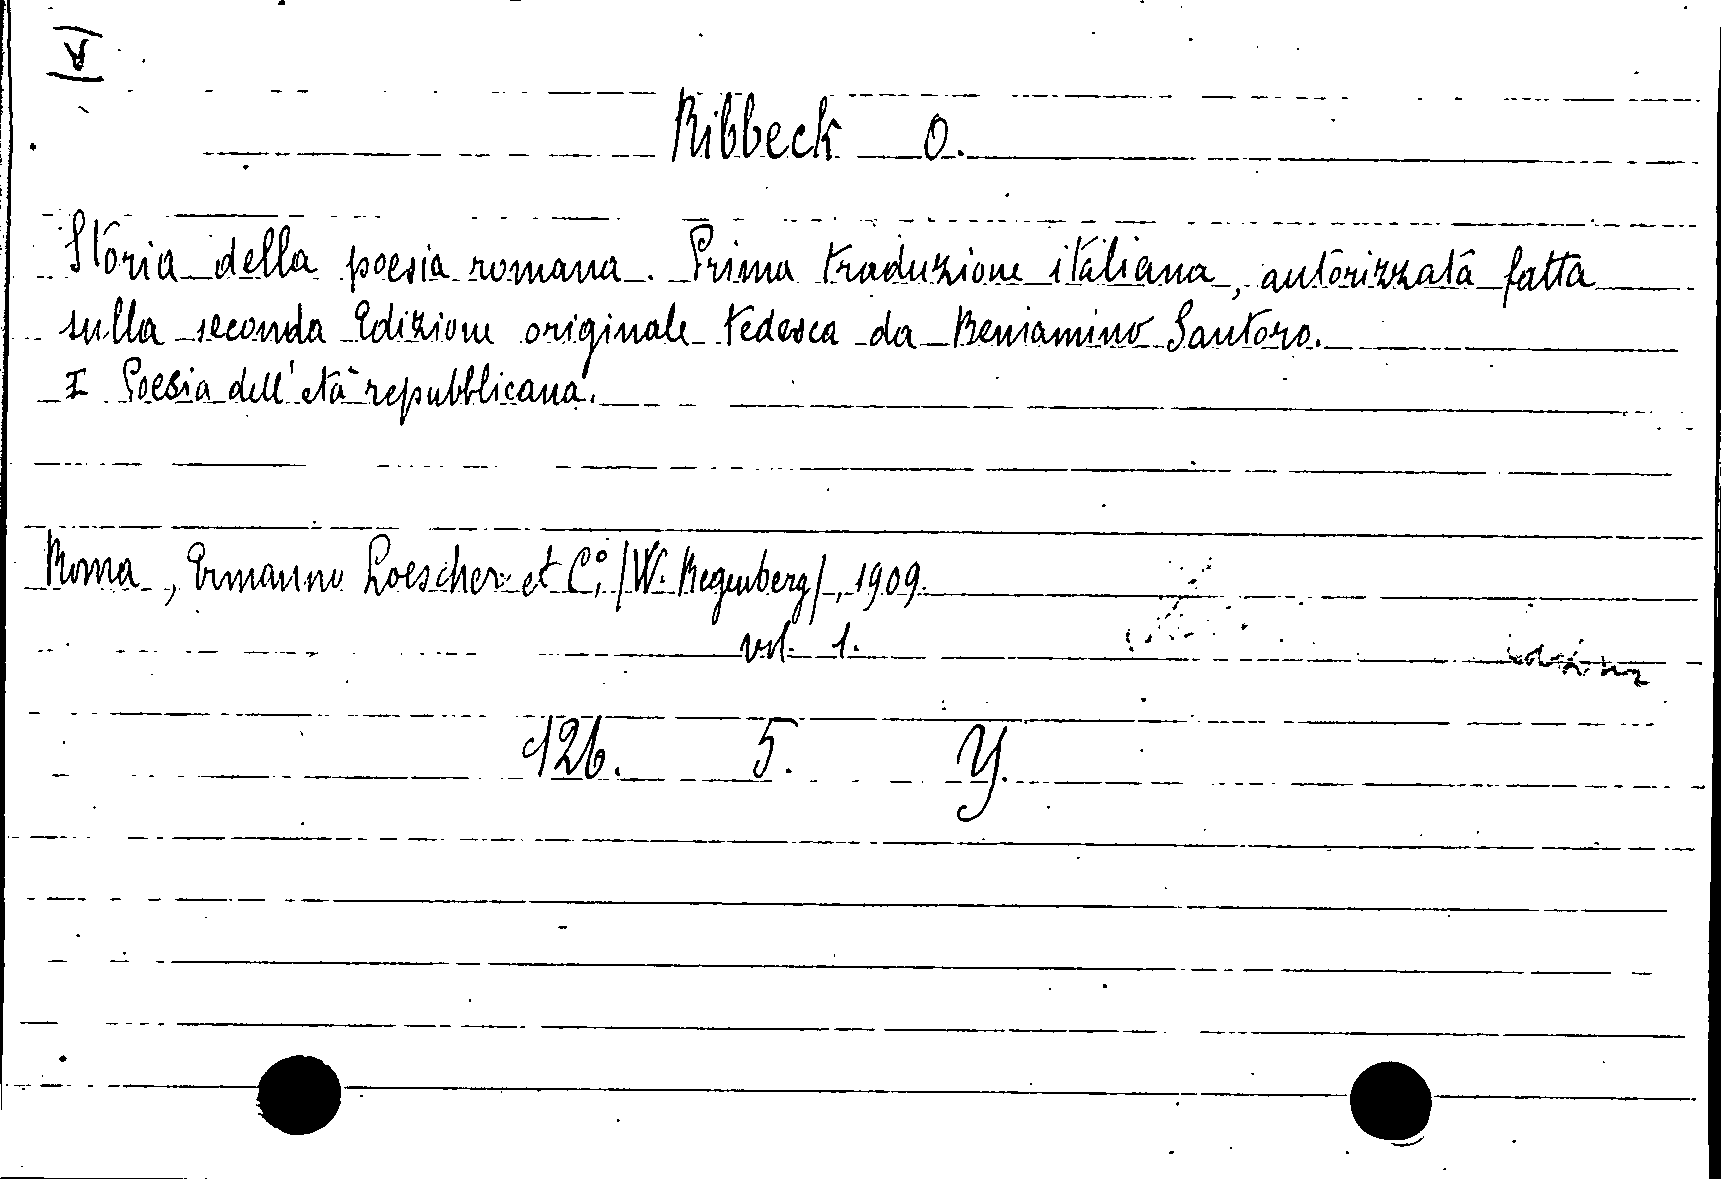 Ribbeck O.
Storia della poesia romana. Prima traduzione italiana, autorizzata fatta
sulla seconda Edizione originale tedesca da Beniamino Santoro.
I Poesia dell'età repubblicana.
Roma, Ermanno Loescher et C.º, /W. Regenberg/, 1909.
vol. 1.
126. 5. Y.